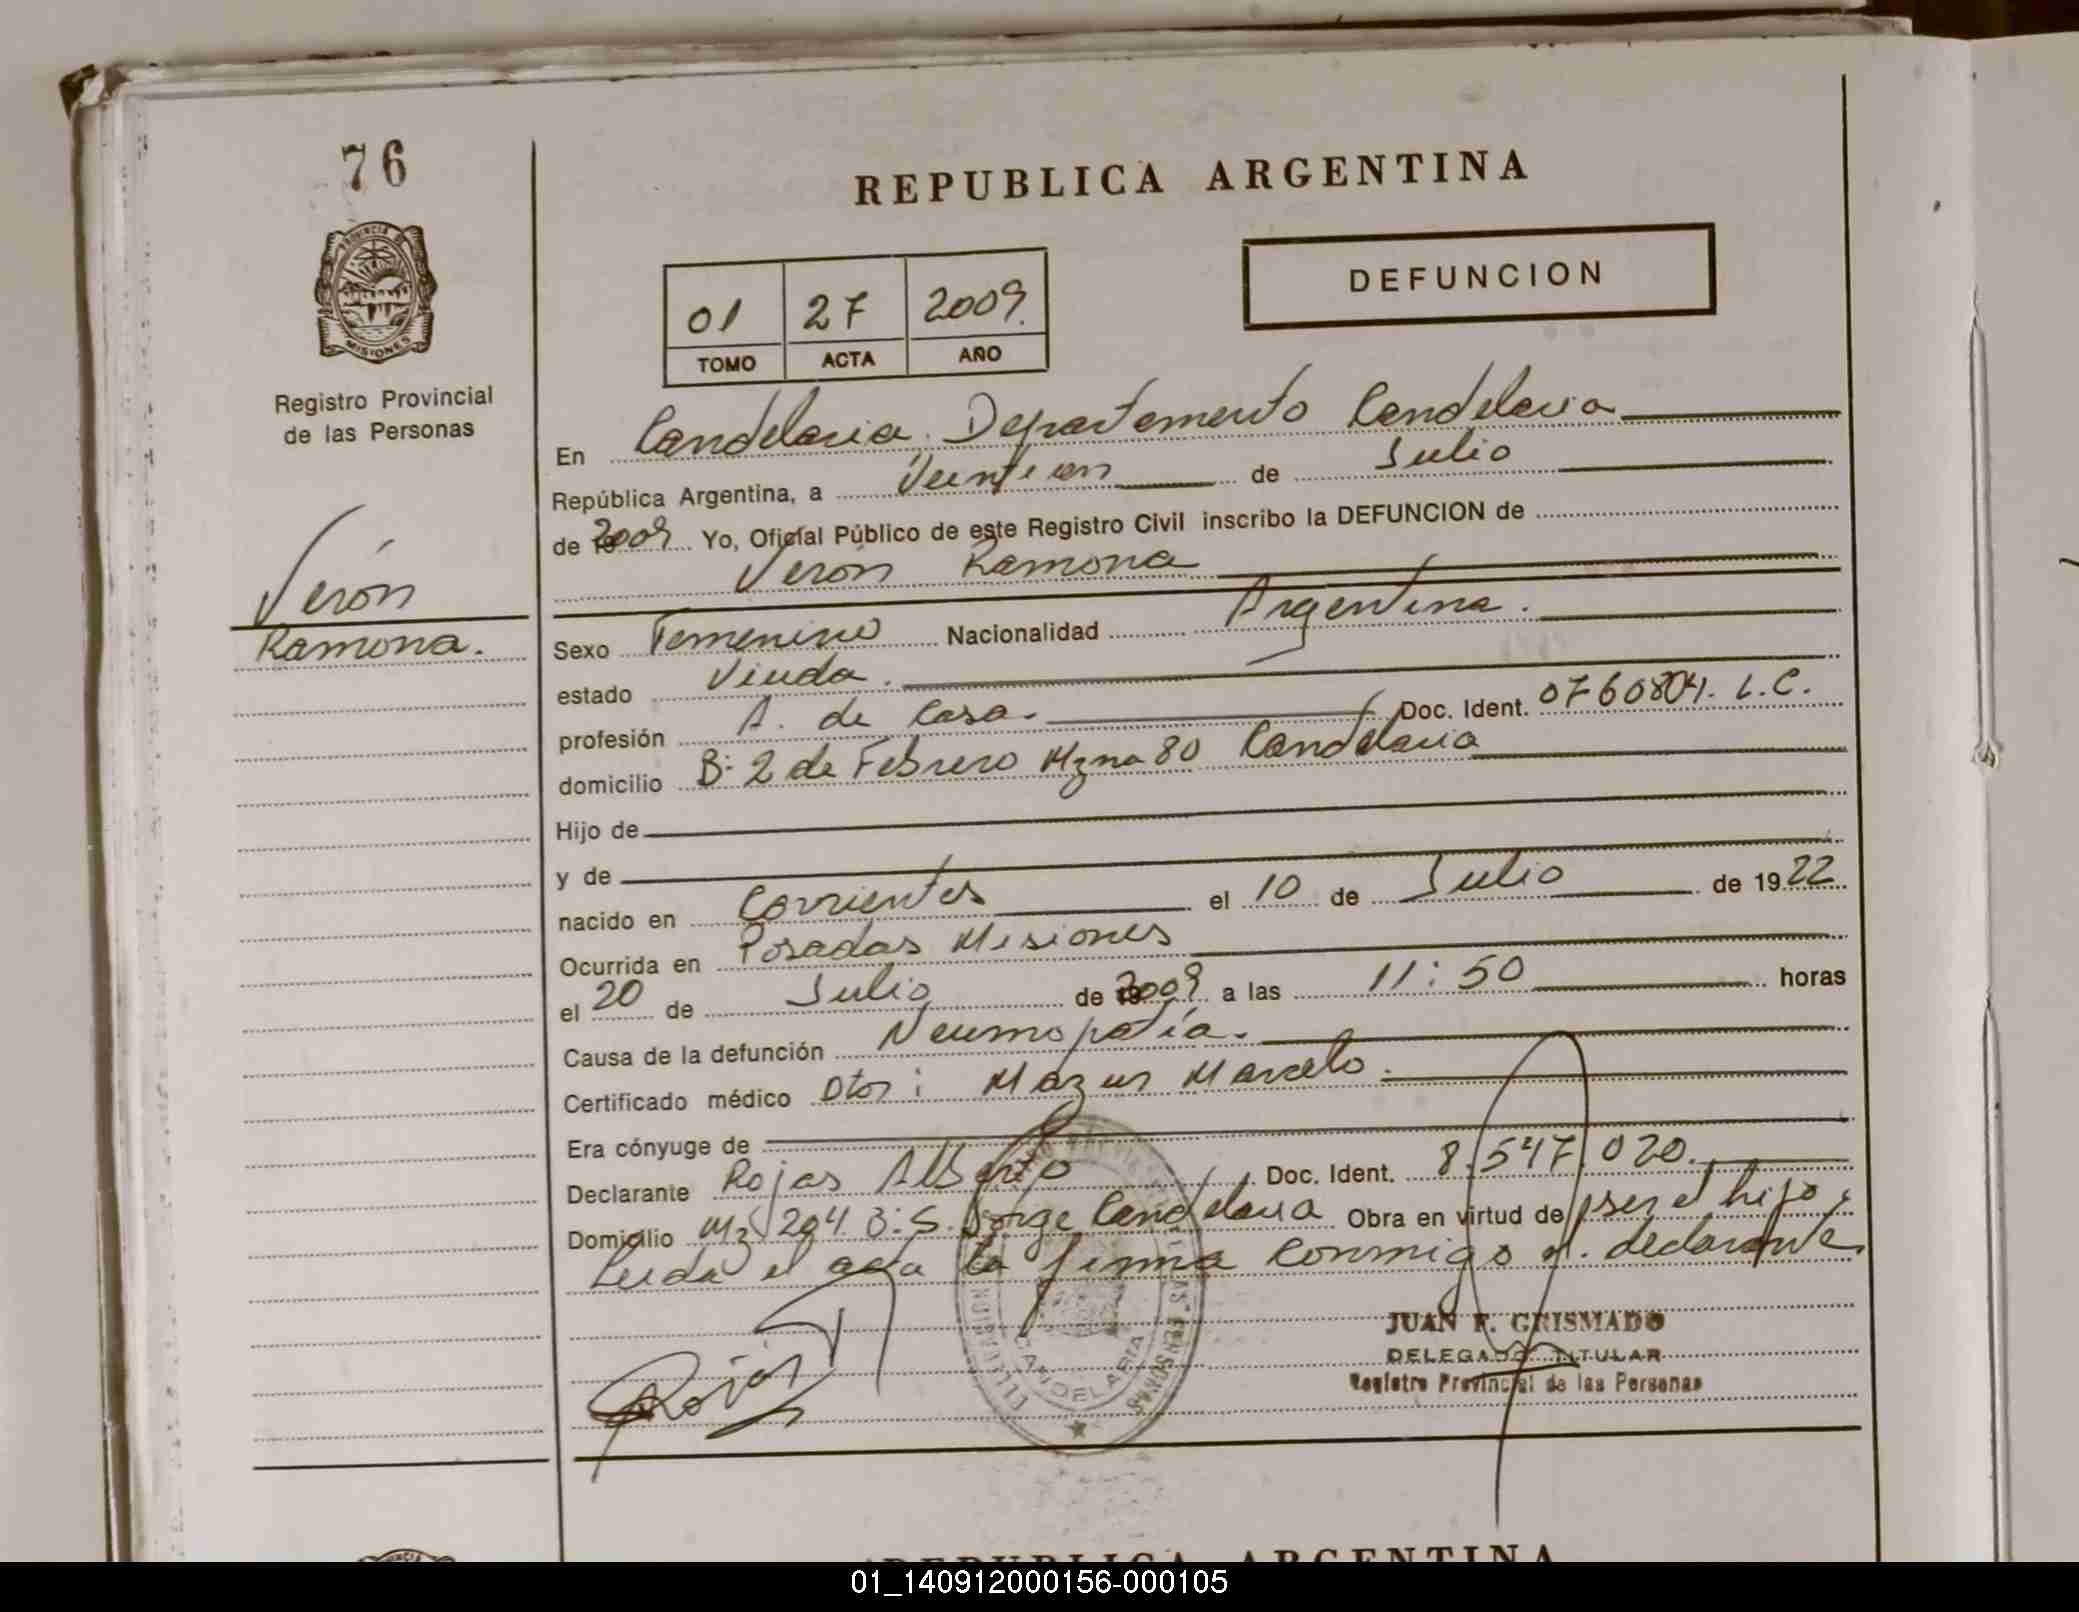 76
REPUBLICA ARGENTINA
PROVINCIA DE
MISIONES
01 27 2009.
TOMO ACTA AÑO
DEFUNCION
Registro Provincial
de las Personas
En Candelaria Departamento Candelaria
República Argentina, a Veintiun de Julio
de 2009 Yo, Oficial Público de este Registro Civil inscribo la DEFUNCION de
Verón Ramona
Verón
Ramona.
Sexo Femenino Nacionalidad Argentina.
estado Viuda.
profesión A. de Casa. Doc. Ident. 0760804. L.C.
domicilio B: 2 de Febrero Mzna 80 Candelaria
Hijo de
y de
nacido en Corrientes el 10 de Julio de 1922
Ocurrida en Posadas Misiones
el 20 de Julio de 2009 a las 11:50 horas
Causa de la defunción Neumopatía.
Certificado médico Dtor: Mazur Marcelo.
Era cónyuge de
Declarante Rojas Alberto Doc. Ident. 8.547.020.
Domicilio Mz 204 B: S. Jorge Candelaria Obra en virtud de ser el hijo
Leida el acta la firma conmigo el declarante
Rojas
CANDELARIA
JUAN F. GRISMADO
DELEGADO TITULAR
Registro Provincial de las Personas
REPUBLICA ARGENTINA
01_140912000156-000105